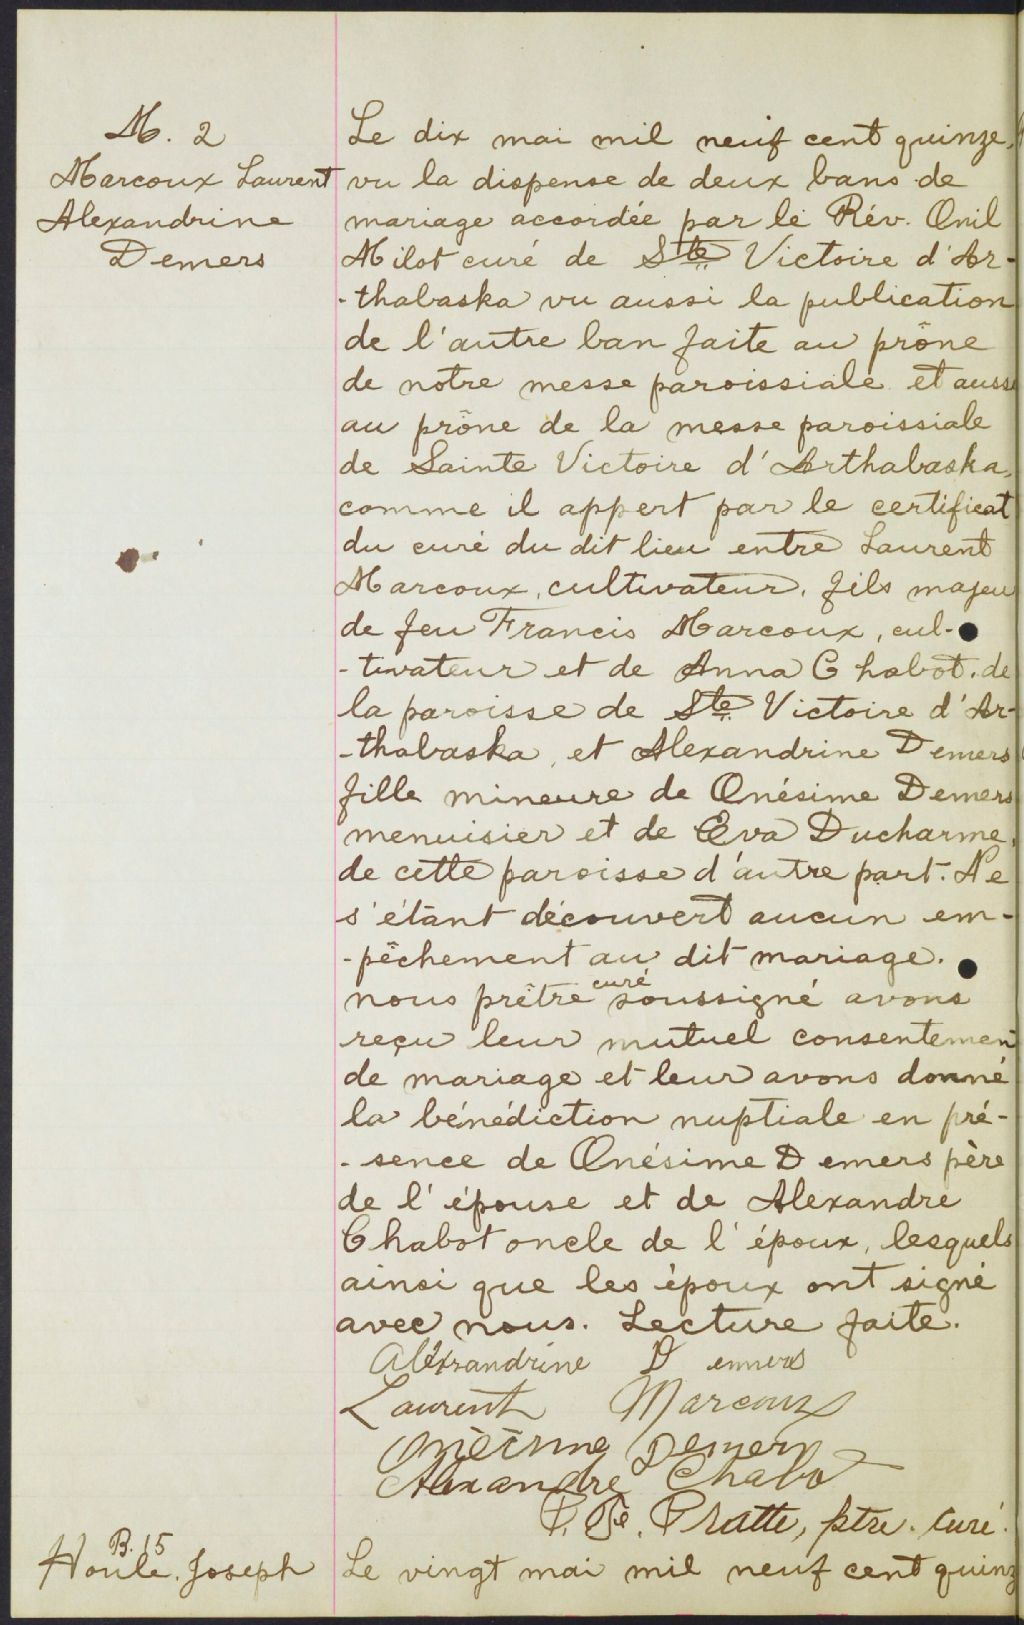 M. 2
Marcoux Laurent
Alexandrine
Demers
Le dix mai mil neuf cent quinze,
vu la dispense de deux bans de
mariage accordée par le Rév. Onil
Milot curé de Ste Victoire d'Ar-
-thabaska vu aussi la publication
de l'autre ban faite au prône
de notre messe paroissiale et aussi
au prône de la messe paroissiale
de Sainte Victoire d'Arthabaska,
comme il appert par le certificat
du curé du dit lieu entre Laurent
Marcoux, cultivateur, fils majeu
de feu Francis Marcoux, cul-
-tivateur et de Anna Chabot, de
la paroisse de Ste Victoire d'Ar-
-thabaska, et Alexandrine Demers
fille mineure de Onésime Demers
menuisier et de Eva Ducharme,
de cette paroisse d'autre part. Ne
s'étant découvert aucun em-
-pêchement au dit mariage.
nous prêtre curé soussigné avons
reçu leur mutuel consentemen
de mariage et leur avons donné
la bénédiction nuptiale en pré-
-sence de Onésime Demers père
de l'épouse et de Alexandre
Chabot oncle de l'époux, lesquels
ainsi que les époux ont signé
avec nous. Lecture faite.
Aléxsandrine Demers
Laurent Marcoux
Onèsime Demers
Alexandre Chabot
P. Pratte, ptre. curé.
B. 15
Houle, Joseph
Le vingt mai mil neuf cent quinz